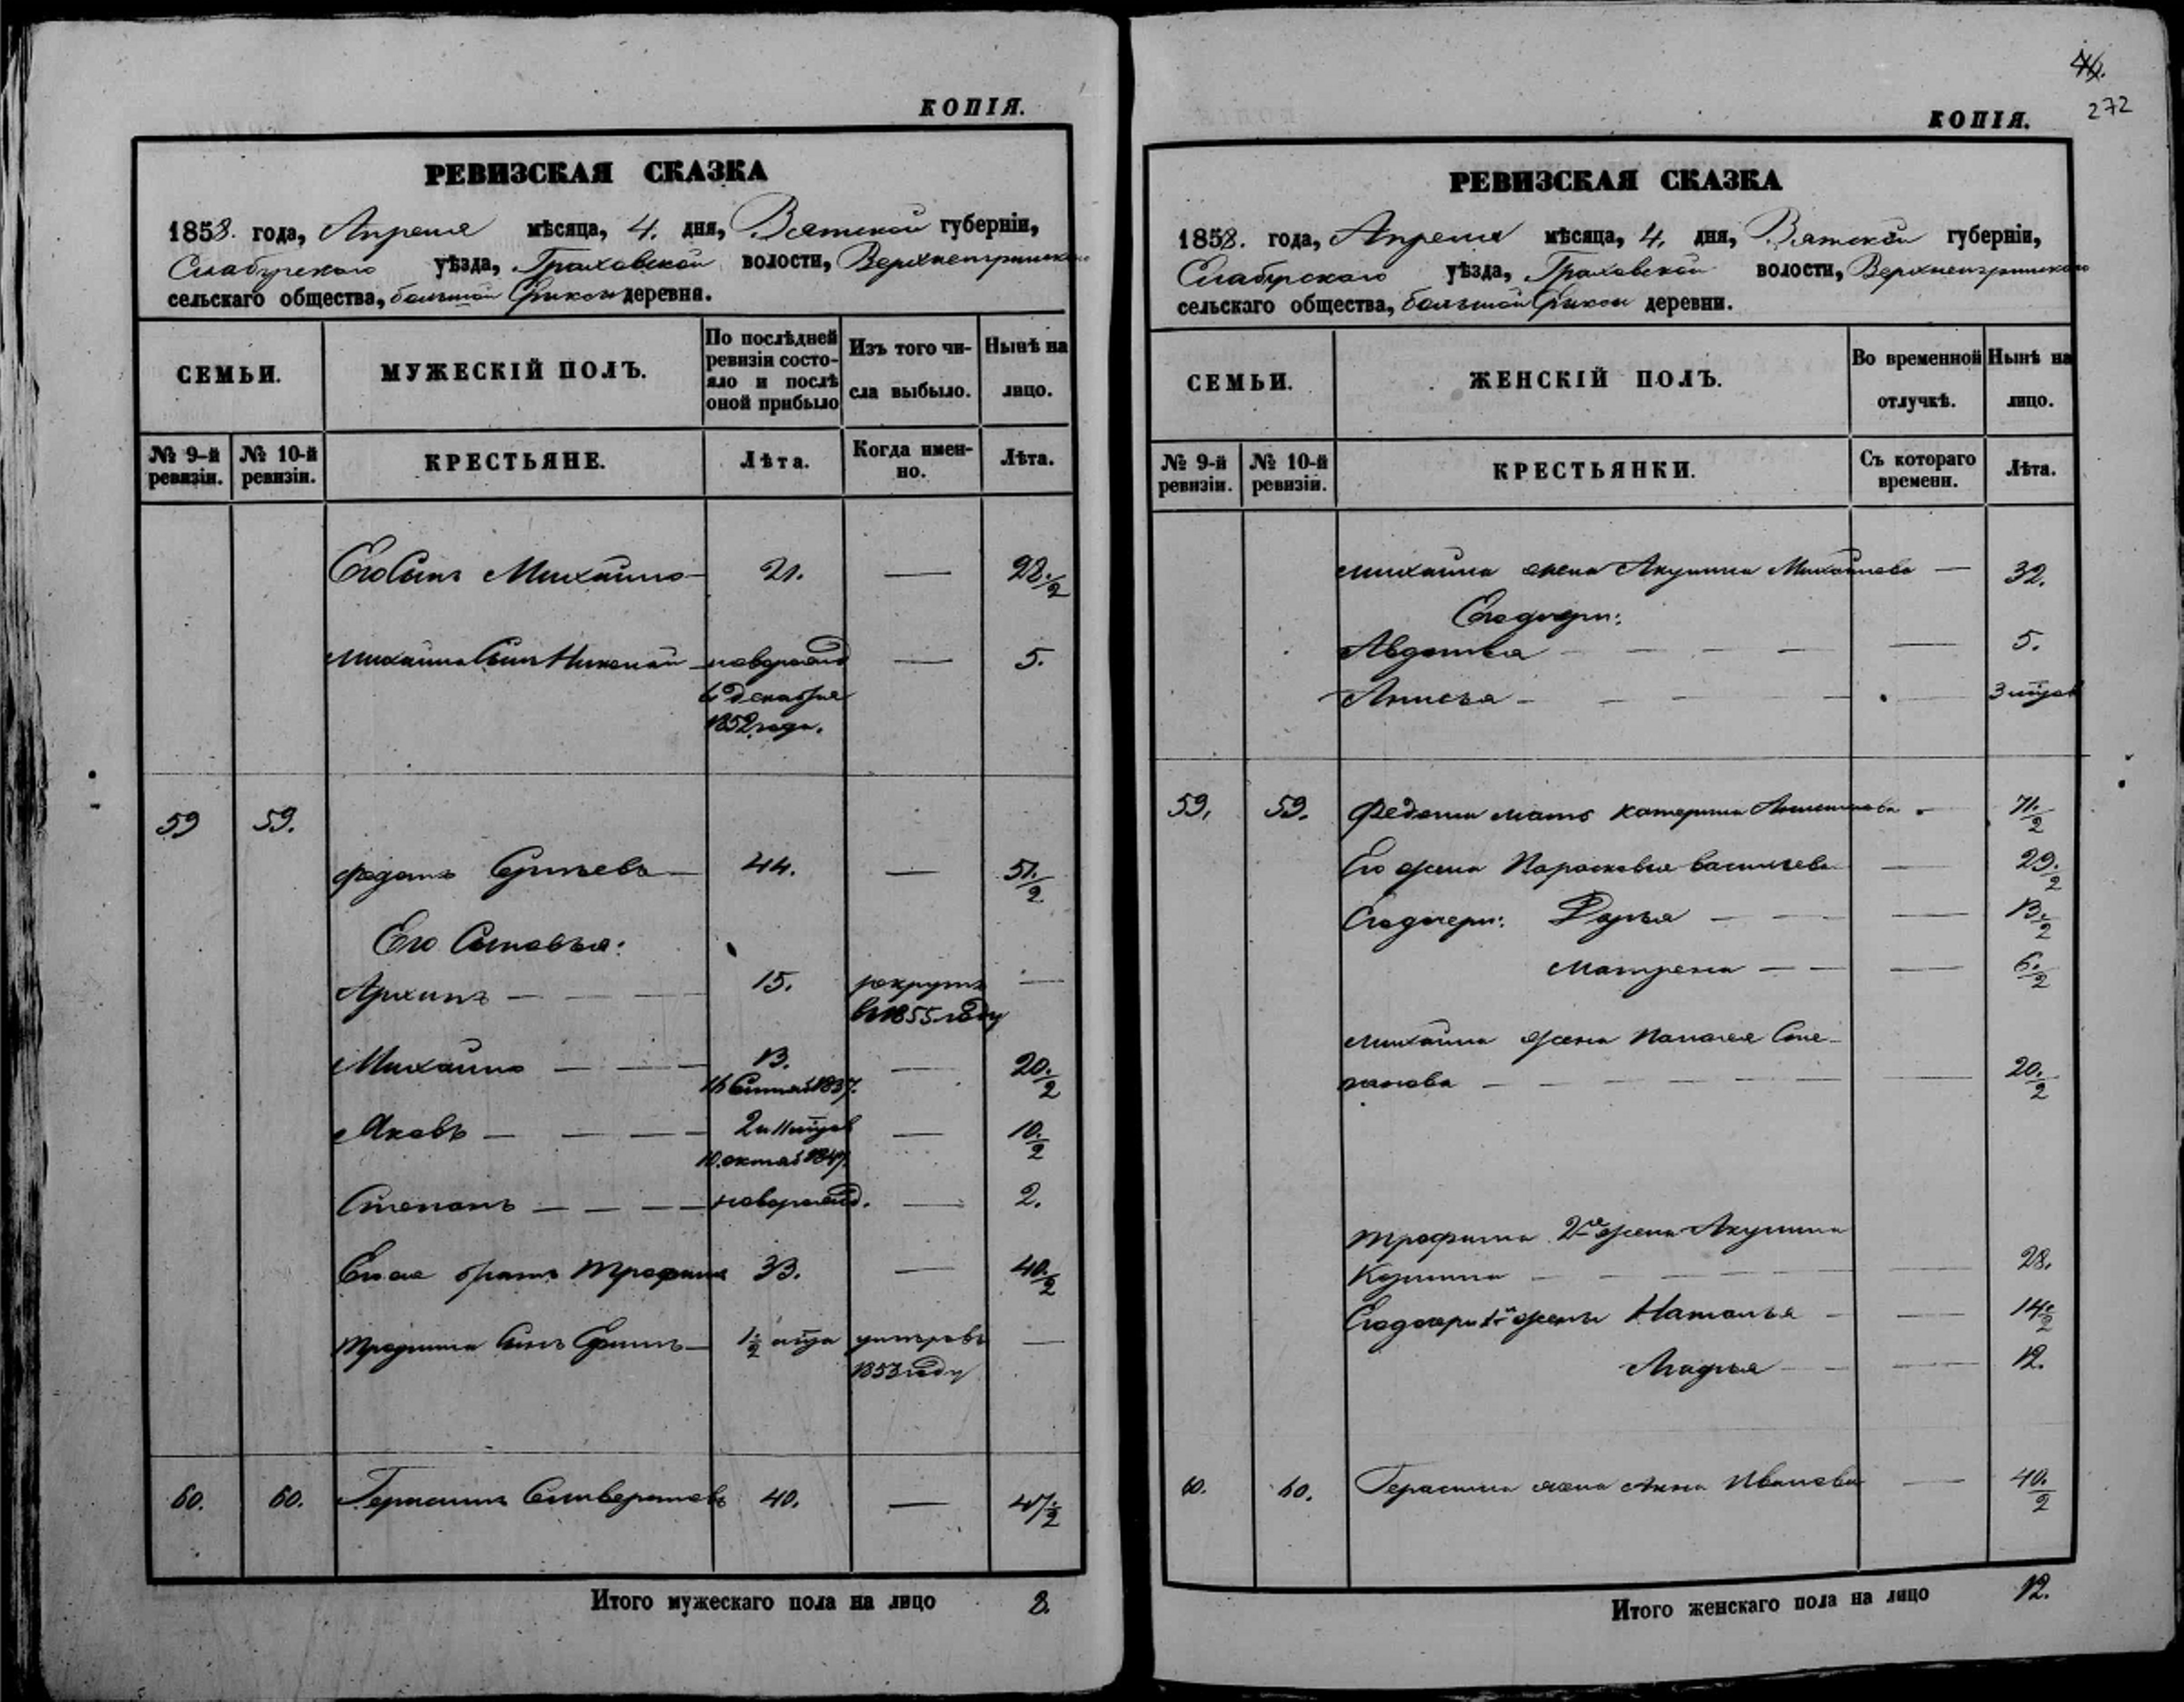 КОПІЯ.
РЕВИЗСКАЯ СКАЗКА
1858. года, Апреля мѣсяца, 4. дня, Вятской губерніи,
Елабугскаго уѣзда, Граховской волости,
сельскаго общества, большой Ерыксы деревня.
СЕМЬИ.
МУЖЕСКІЙ ПОЛЪ.
По послѣдней ревизіи состояло и послѣ оной прибыло
Изъ того числа выбыло.
Нынѣ на лицо.
№ 9-й ревизіи.
№ 10-й ревизіи.
КРЕСТЬЯНЕ.
Лѣта.
Когда именно.
Лѣта.
Его Сынъ Михайло 21. — 28 1/2
Михайла Сынъ Николай новорожд — 5.
6 Декабря
1852 года.
59 59.
Федотъ 44. — 51 1/2
Его Сыновья:
Архипъ — 15. рекрутъ —
въ 1855 году
Михайло — 13. — 20 1/2
16 1837.
Яковъ — 2 и 11 мѣсяцов — 10 1/2
10. октяб 1847.
Степанъ — новорожд. — 2.
Его же братъ Трофимъ 33. — 40 1/2
Трофима Сынъ 1/2 года умеръ въ —
1853 году
60. 60. Герасимъ Селиверстовъ 40. — 47 1/2
Итого мужескаго пола на лицо 8.
46.
272
КОПІЯ.
РЕВИЗСКАЯ СКАЗКА
1858. года, Апреля мѣсяца, 4. дня, Вятской губерніи,
Елабугскаго уѣзда, Граховской волости,
сельскаго общества, большой Ерыксы деревни.
СЕМЬИ.
ЖЕНСКІЙ ПОЛЪ.
Во временной отлучкѣ.
Нынѣ на лицо.
№ 9-й ревизіи.
№ 10-й ревизіи.
КРЕСТЬЯНКИ.
Съ котораго времени.
Лѣта.
Михайла жена Акулина Михайлова — 32.
Его дочери:
Авдотья — 5.
Анисья — 3 мѣсяц
59. 59. Федота мать Катерина — 71 1/2
Его жена Парасковья Васильева — 29 1/2
Его дочери: Дарья — 13 1/2
Матрена — 6 1/2
Михайла жена Палагея Сте-
панова — 20 1/2
Трофима 2я жена Акулина
Козмина — 28.
Его дочери 1й жены Наталья — 14 1/2
Марья — 12.
60. 60. Герасима жена Анна Иванова — 40 1/2
Итого женскаго пола на лицо 12.